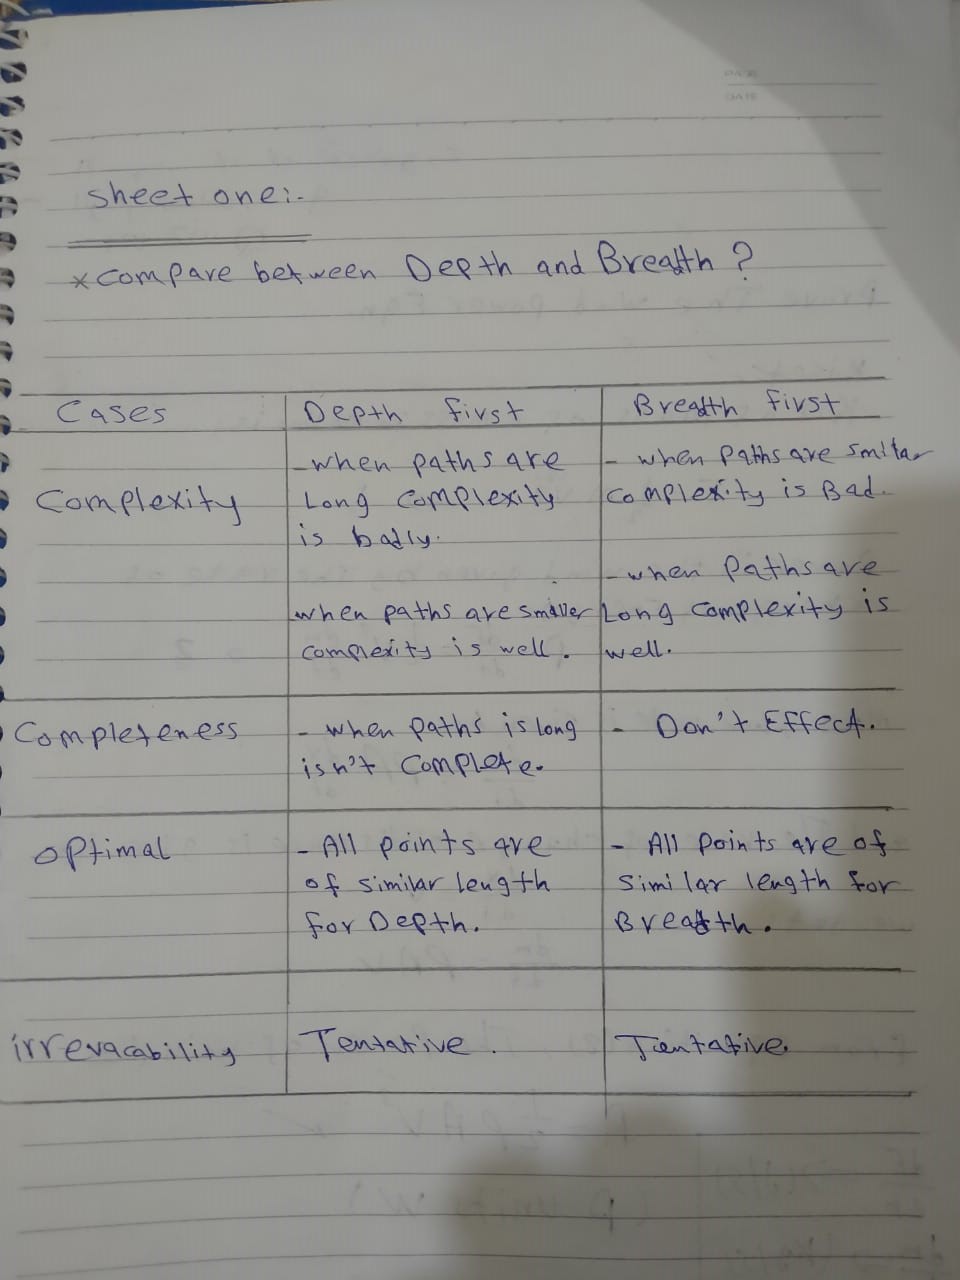 PAGE
DATE
Sheet one:-
* Compare between Depth and Breadth ?
Cases
Depth first
Breadth first
Complexity
- when paths are
Long complexity
is badly.
when paths are smaller
complexity is well.
- when paths are smilar
complexity is Bad.
- when paths are
Long complexity is
well.
Completeness
- when paths is long
isn't complete.
- Don't Effect.
optimal
- All points are
of similar length
for Depth.
- All points are of
similar length for
Breadth.
irrevacability
Tentative.
Tentative.